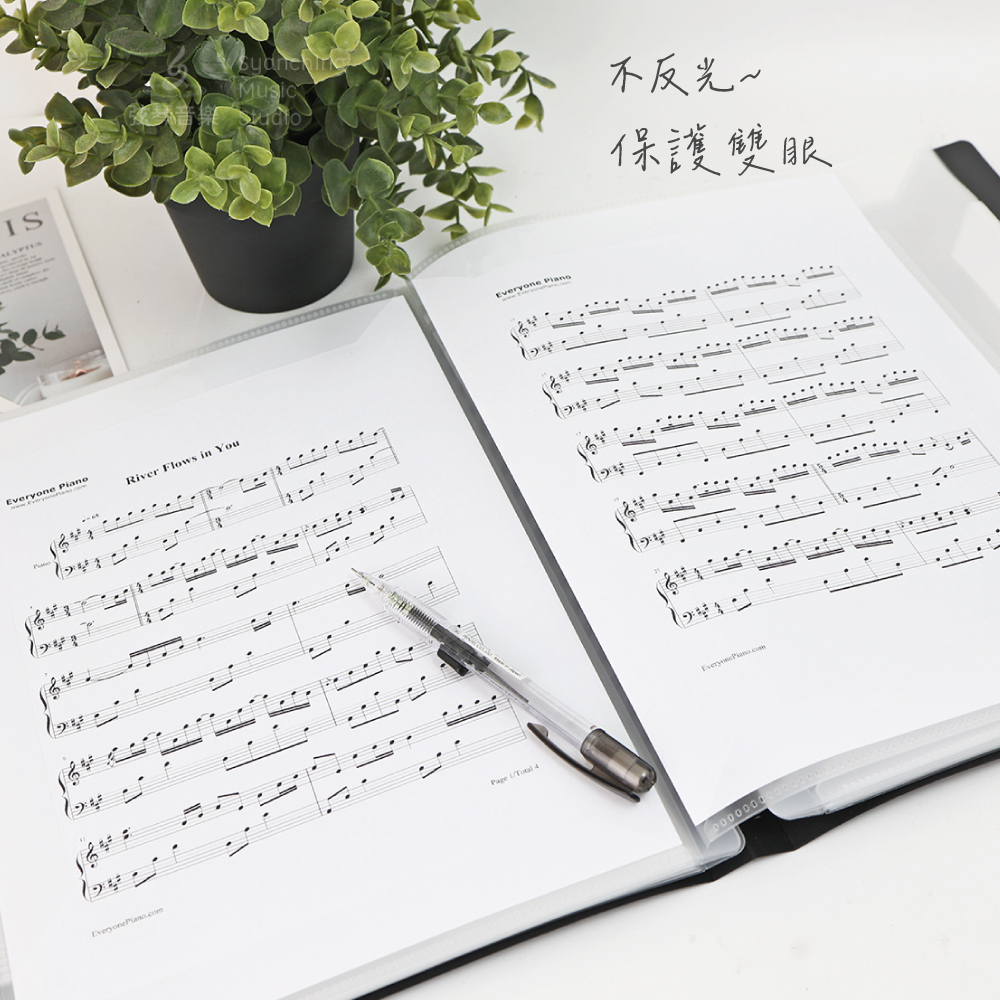 不反光~
保護雙眼
Syanchin
Music
弦琴音樂 Studio
IS
ALYPTUS
Everyone Piano
www.EveryonePiano.com
River Flows in You
Everyone Piano
www.EveryonePiano.com
Piano
Page 1/Total 4
EveryonePiano.com
EveryonePiano.com